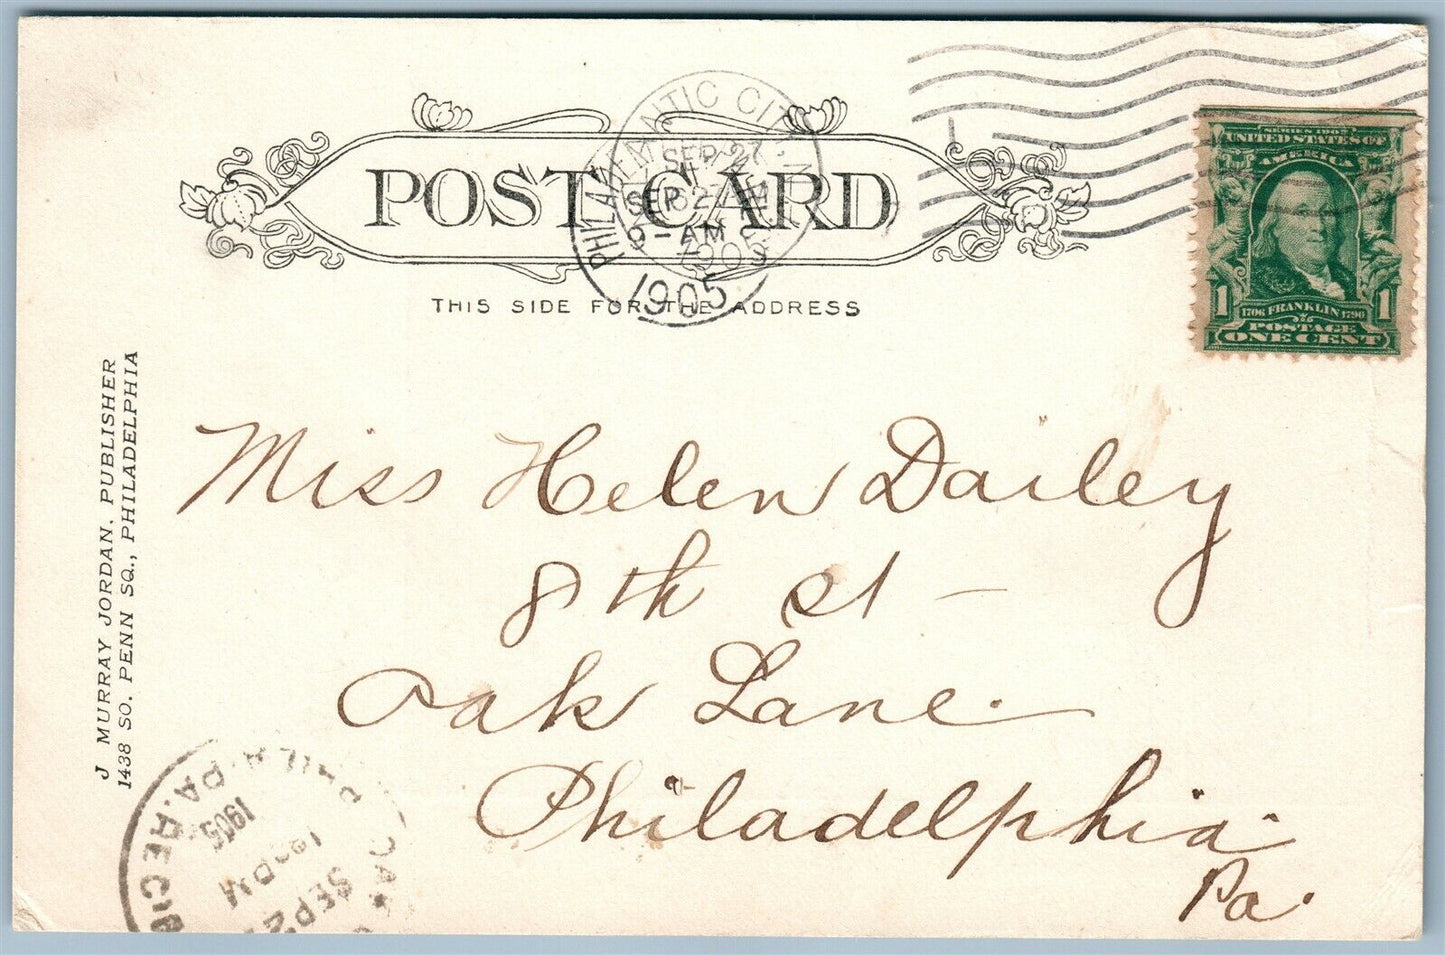 POST CARD
THIS SIDE FOR THE ADDRESS
ATLANTIC CITY, N.J.
SEP 27
1905
PHILA
SEP 27
9-AM
1905
SERIES 1902
UNITED STATES OF
AMERICA
1 1
1706 FRANKLIN 1790
POSTAGE
ONE CENT
J MURRAY JORDAN, PUBLISHER
1438 SO. PENN SQ., PHILADELPHIA
Miss Helen Dailey
8th St —
Oak Lane.
Philadelphia.
Pa.
PHILA. PA. REC'D
1905
SEP 2